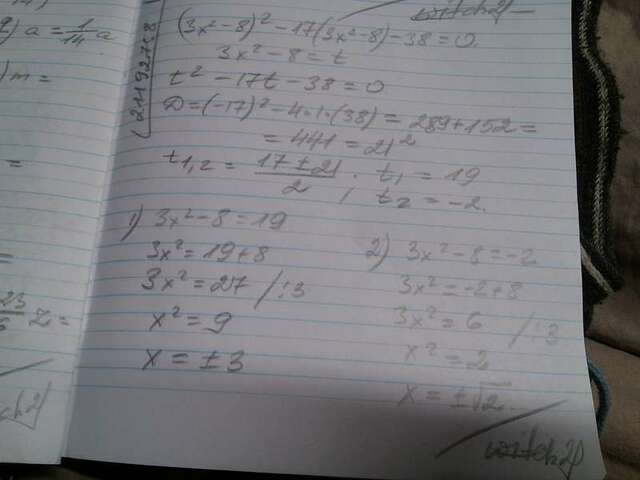 a = 1/14 a
m =
=
=
z =
(3x²-8)² - 17(3x²-8) - 38 = 0.
3x² - 8 = t
t² - 17t - 38 = 0
D = (-17)² - 4·1·(38) = 289 + 152 =
= 441 = 21²
t1,2 = (17 ± 21)/2 ; t1 = 19
t2 = -2.
1) 3x² - 8 = 19
3x² = 19 + 8
3x² = 27 /:3
x² = 9
x = ±3
2) 3x² - 8 = -2
3x² = -2 + 8
3x² = 6 /:3
x² = 2
x = ±√2.